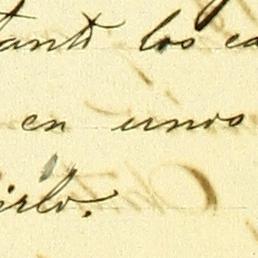 tanto los ca
en unos
irlo.